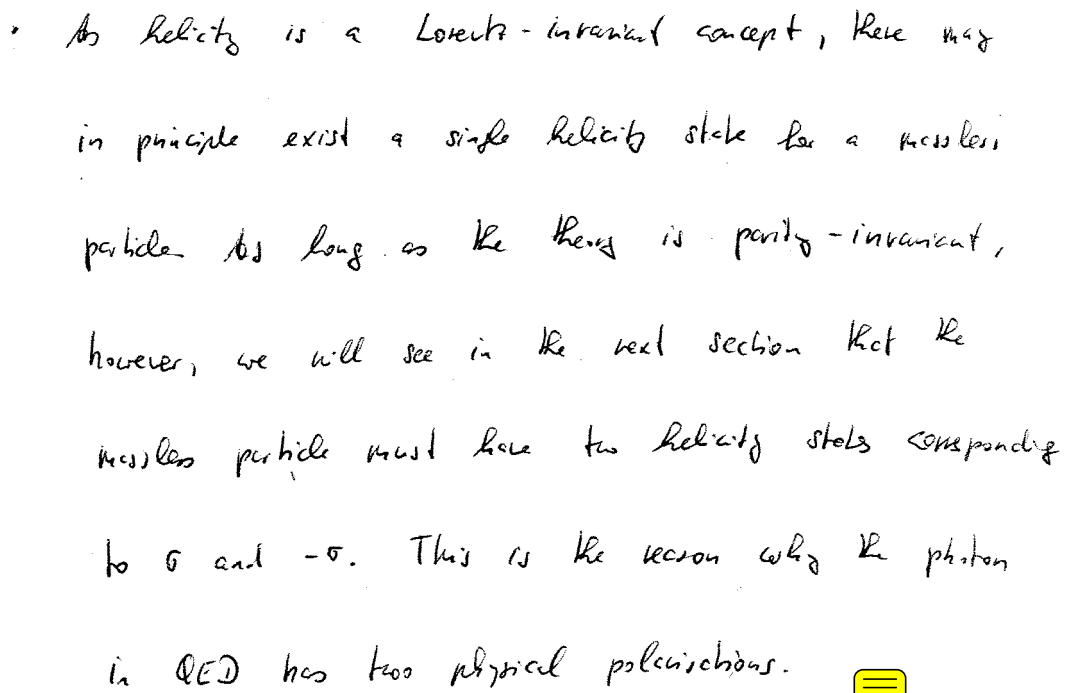 • As helicity is a Lorentz-invariant concept, there may
in principle exist a single helicity state for a massless
particle. As long as the theory is parity-invariant,
however, we will see in the next section that the
massless particle must have two helicity states corresponding
to σ and -σ. This is the reason why the photon
in QED has two physical polarisations.